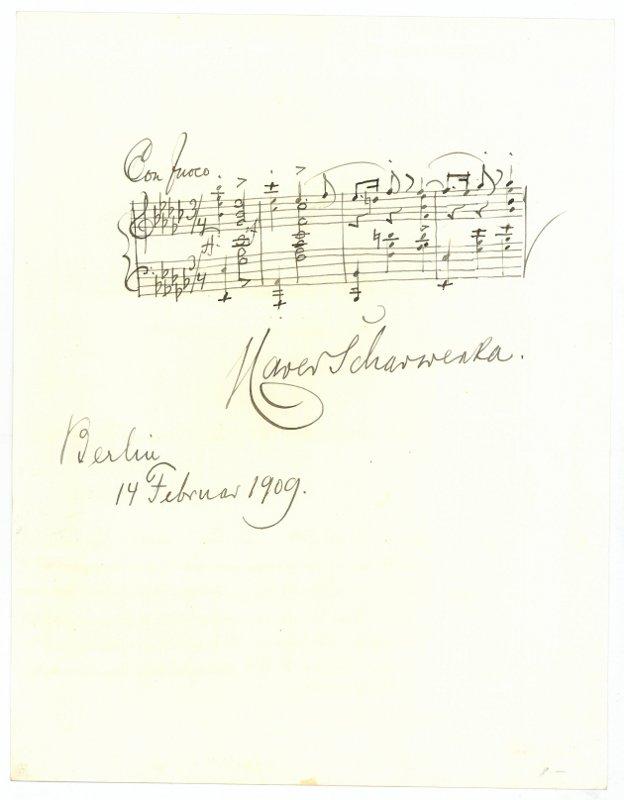 Con fuoco
3/4
3/4
Xaver Scharwenka.
Berlin
14 Februar 1909.